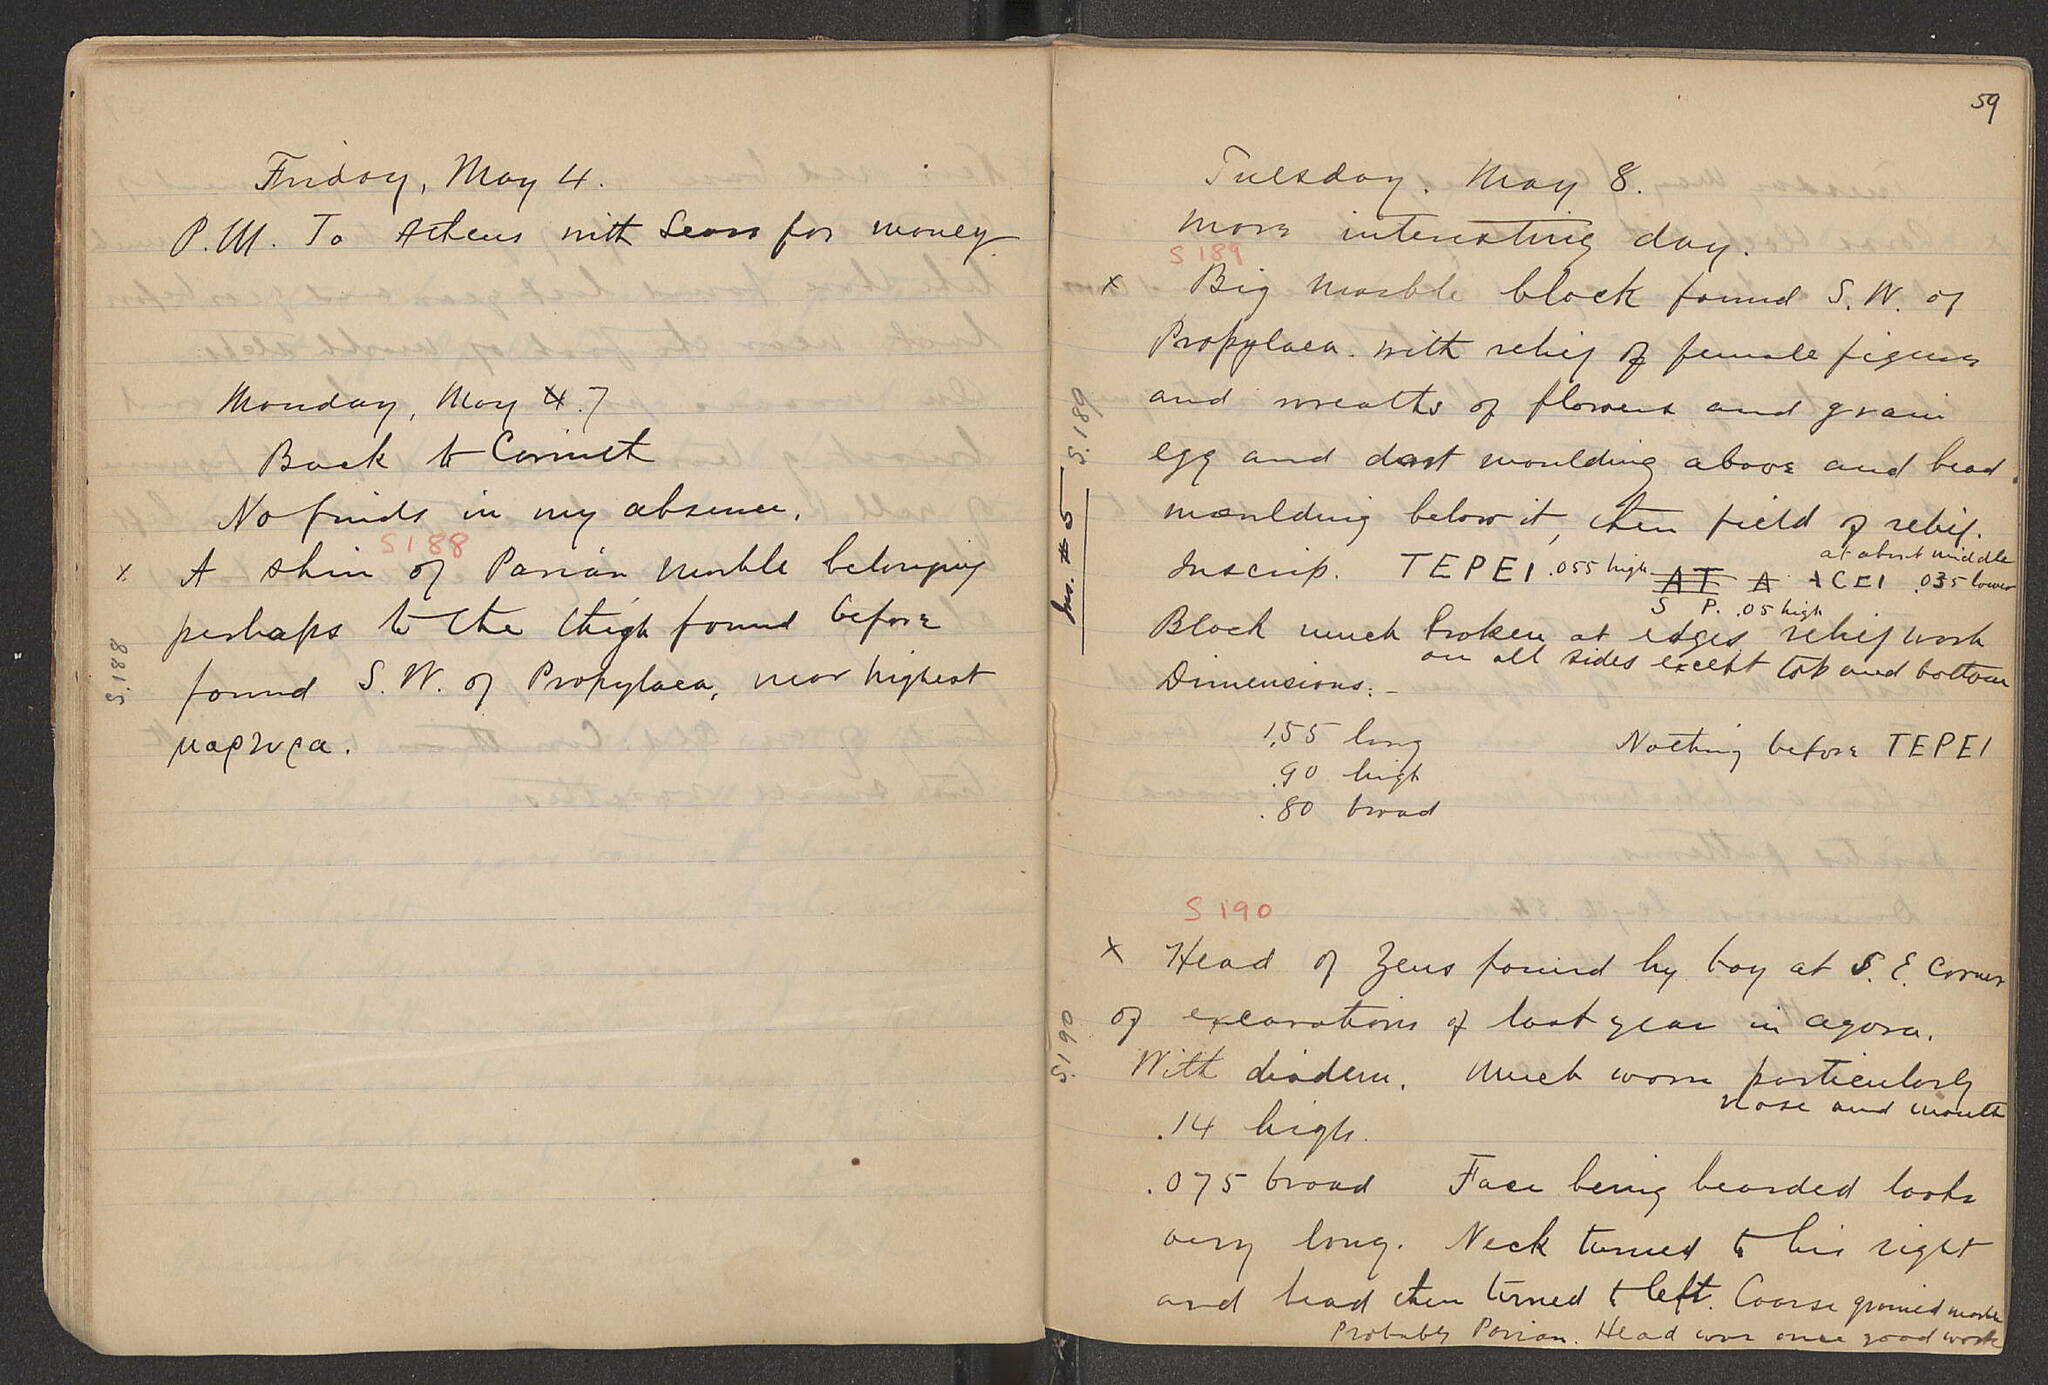 Friday, May 4.
P.M. To Athens with Sears for money.
Monday, May 4. 7
Back to Corinth
No finds in my absence.
S 188
x A shin of Parian marble belonging
perhaps to the thigh found before
found S.W. of Propylaea, near highest
μαρμαρα.
S.188
59
Tuesday. May 8.
More interesting day.
S 189
x Big marble block found S.W. of
Propylaea. with relief of female figures
and wreaths of flowers and grain
egg and dart moulding above and bead
moulding below it, then field of relief.
at about middle
Inscrip. TEPEI .055 high AT A ACEI .035 lower
S P. .05 high
Block much broken at edges, relief work
on all sides except top and bottom
Dimensions. –
1.55 long
.90 high
.80 broad
Nothing before TEPEI
Ins. # 5 S.189
S 190
x Head of Zeus found by boy at S. E. corner
of excavations of last year in agora.
With diadem. Much worn particularly
nose and mouth
.14 high.
.075 broad Face being bearded looks
very long. Neck turned to his right
and head then turned to left. Coarse grained marble
Probably Parian. Head was once good work
S.190